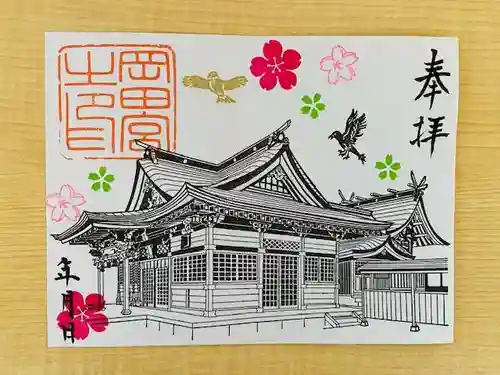 奉拝
岡田宮
之印
年月日